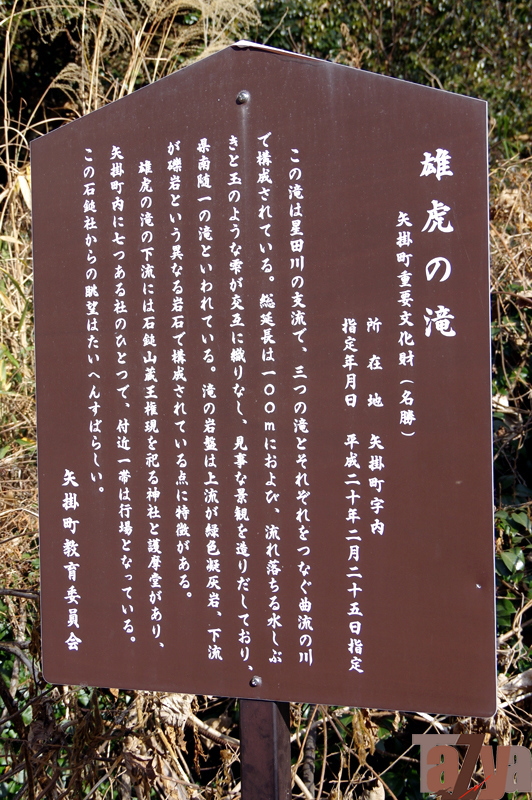 雄虎の滝
矢掛町重要文化財（名勝）
所在地　矢掛町宇内
指定年月日　平成二十年二月二十五日指定
この滝は星田川の支流で、三つの滝とそれぞれをつなぐ曲流の川
で構成されている。総延長は一〇〇mにおよび、流れ落ちる水しぶ
きと玉のような雫が交互に織りなし、見事な景観を造りだしており、
県南随一の滝といわれている。滝の岩盤は上流が緑色凝灰岩、下流
が礫岩という異なる岩石で構成されている点に特徴がある。
雄虎の滝の下流には石鎚山蔵王権現を祀る神社と護摩堂があり、
矢掛町内に七つある社のひとつで、付近一帯は行場となっている。
この石鎚社からの眺望はたいへんすばらしい。
矢掛町教育委員会
Tazya